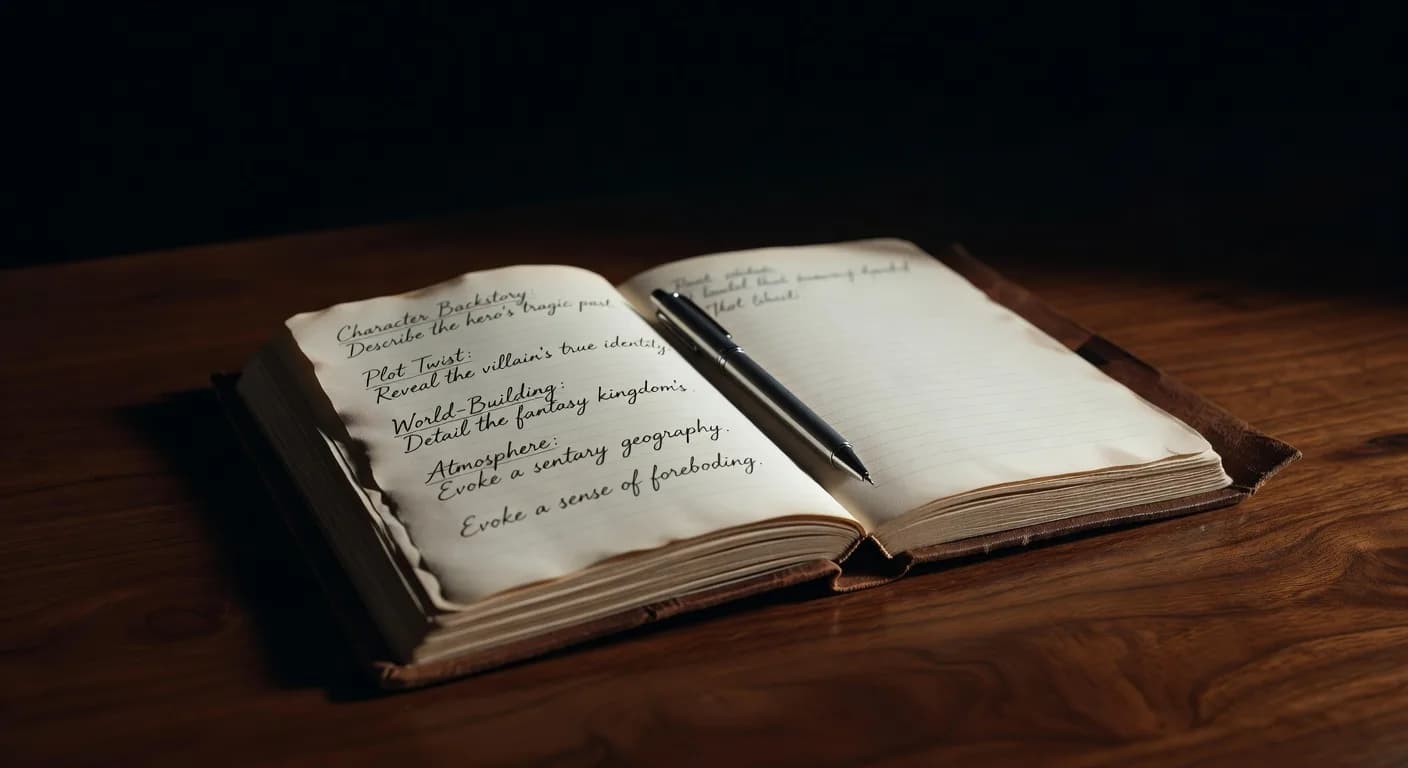 Character Backstory:
Describe the hero's tragic past
Plot Twist:
Reveal the villain's true identity.
World-Building:
Detail the fantasy kingdom's
Atmosphere:
Evoke a sentary geography.
Evoke a sense of foreboding.
That